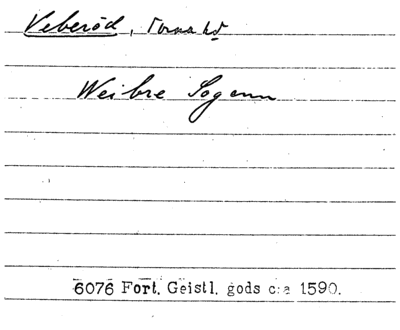 Veberöd, Torna hd
Weibre Sogenn
6076 Fort. Geistl. gods c:a 1590.